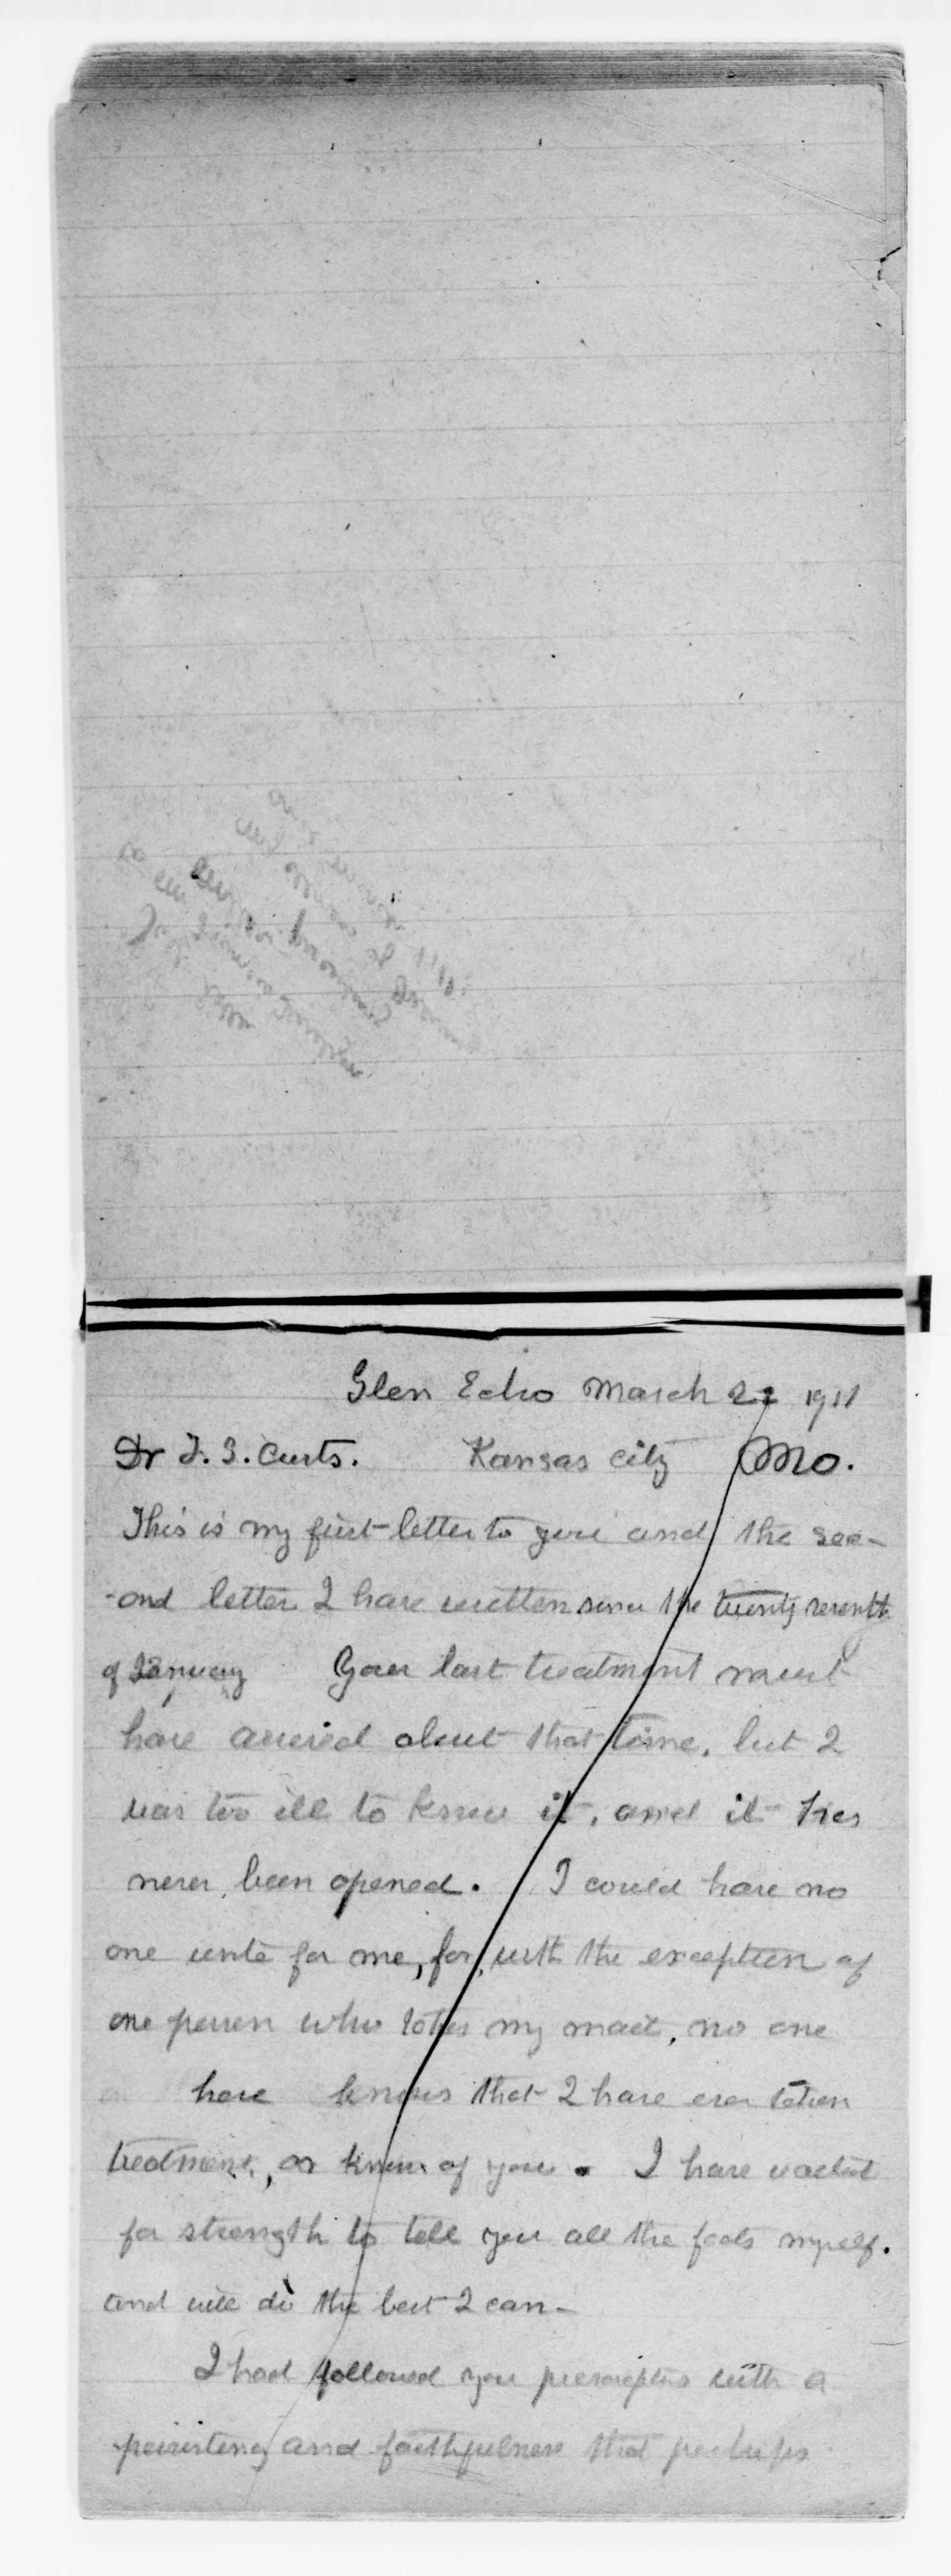 Glen Echo March 22 1911
Dr F. S. Curts. Kansas City Mo.
This is my first letter to you and the sec-
-ond letter I have written since the twenty seventh
of January Your last treatment must
have arrived about that time, but I
was too ill to know it, and it has
never been opened. I could have no
one write for me, for, with the exception of
one person who totes my mail, no one
here knows that I have ever taken
treatment, or know of you. I have waited
for strength to tell you all the facts myself.
and will do the best I can-
I had followed your prescriptions with a
persistency and faithfulness that perhaps